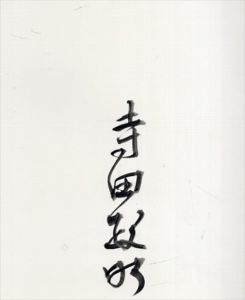 寺田政明